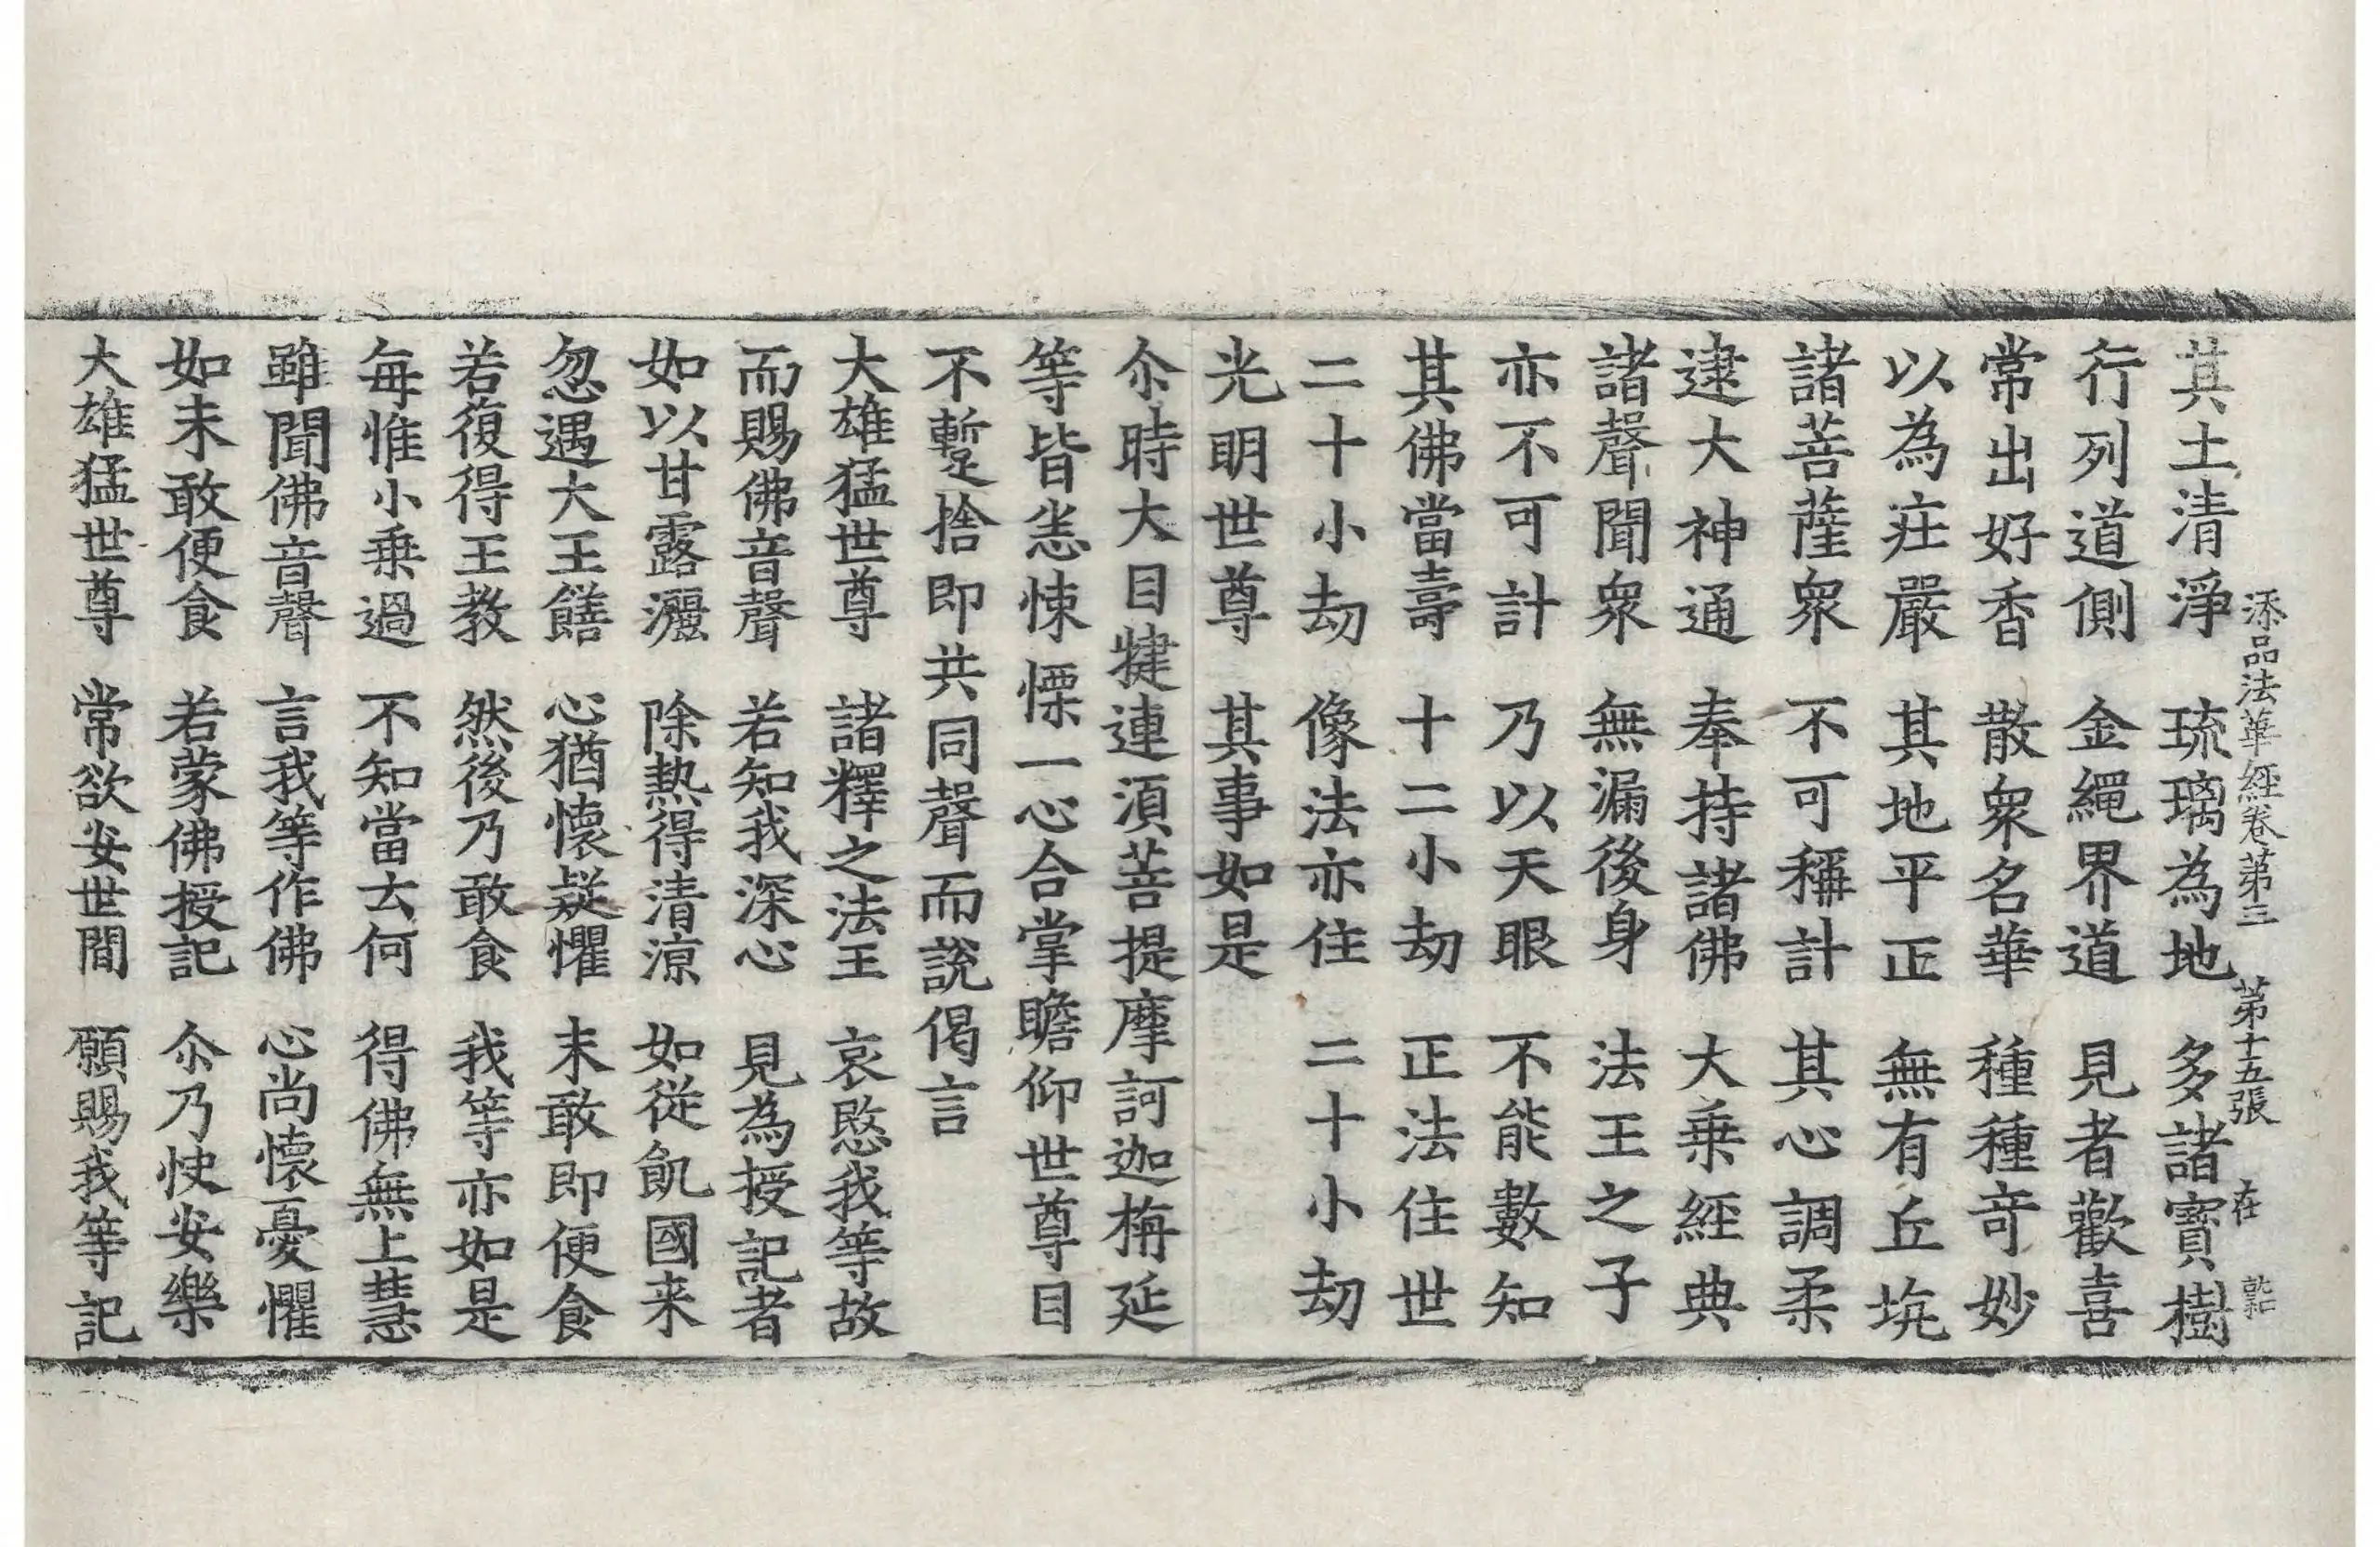 添品法華經卷第三 第十五張 在
其土清淨 琉璃為地 多諸寶樹
行列道側 金繩界道 見者歡喜
常出好香 散衆名華 種種竒妙
以為疘嚴 其地平正 無有丘坑
諸菩薩衆 不可稱計 其心調柔
逮大神通 奉持諸佛 大乗經典
諸聲聞衆 無漏後身 法王之子
亦不可計 乃以天眼 不能數知
其佛當壽 十二小劫 正法住世
二十小劫 像法亦住 二十小劫
光明世尊 其事如是
尒時大目揵連湏菩提摩訶迦栴延
等皆恙悚慄一心合掌瞻仰世尊目
不蹔捨即共同聲而說偈言
大雄猛世尊 諸釋之法王 哀愍我等故
而賜佛音聲 若知我深心 見為授記者
如以甘露灑 除熱得清涼 如從飢國来
忽遇大王饍 心猶懷疑懼 未敢即便食
若復得王教 然後乃敢食 我等亦如是
每惟小乗過 不知當去何 得佛無上慧
雖聞佛音聲 言我等作佛 心尚懷憂懼
如未敢便食 若蒙佛授記 尒乃快安樂
大雄猛世尊 常欲安世間 願賜我等記